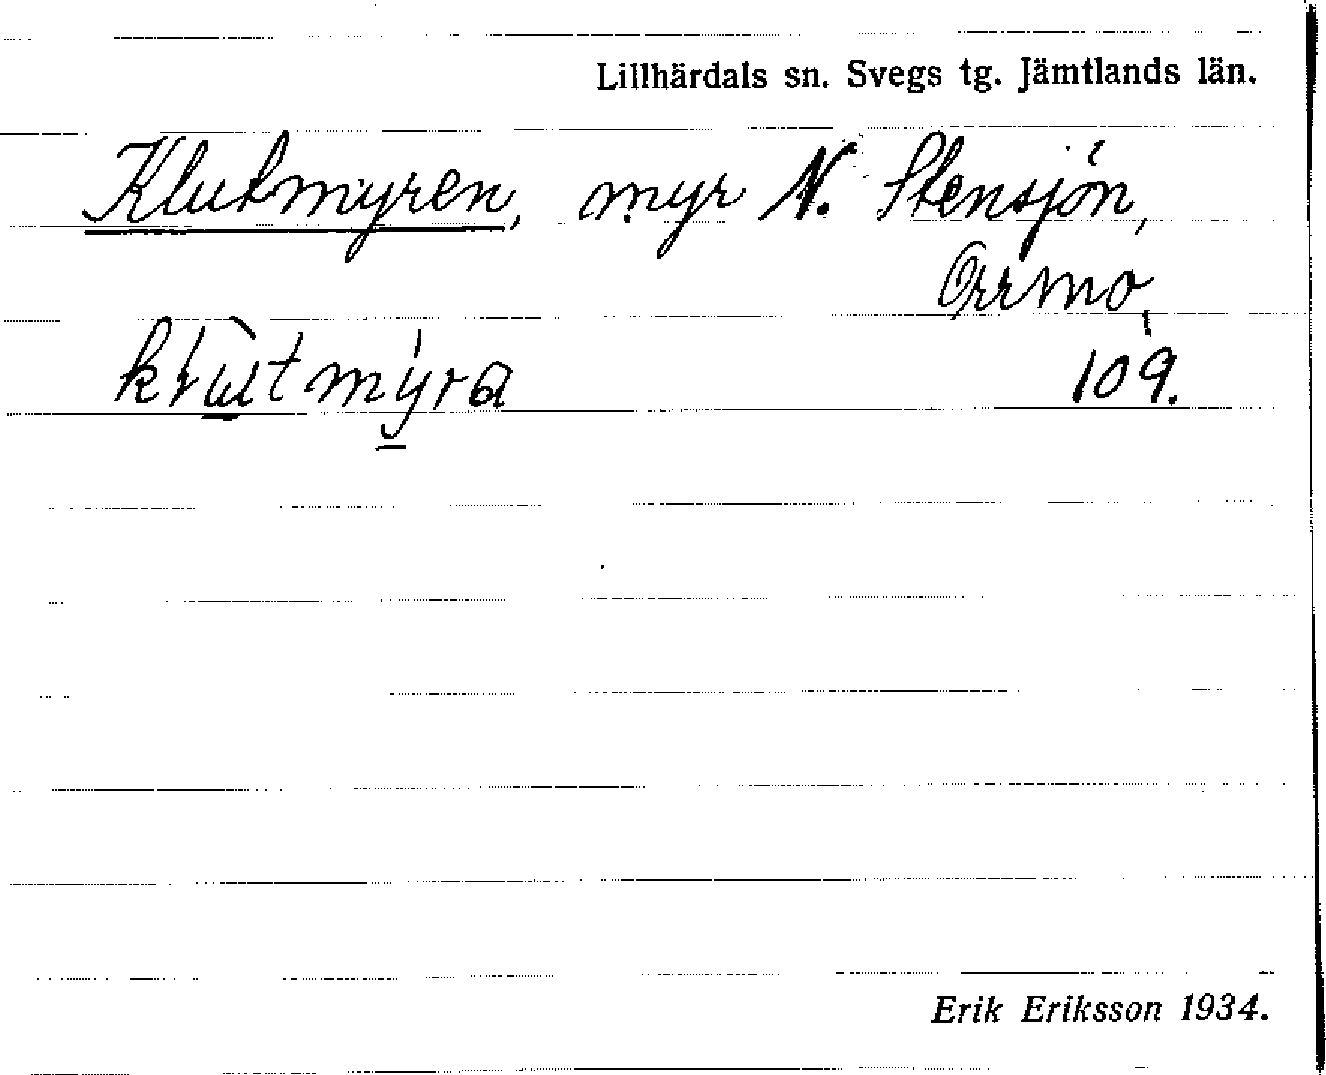 Lillhärdals sn. Svegs tg. Jämtlands län.
Klutmyren, myr N. Stensjön,
Orrmo,
109.
Erik Eriksson 1934.